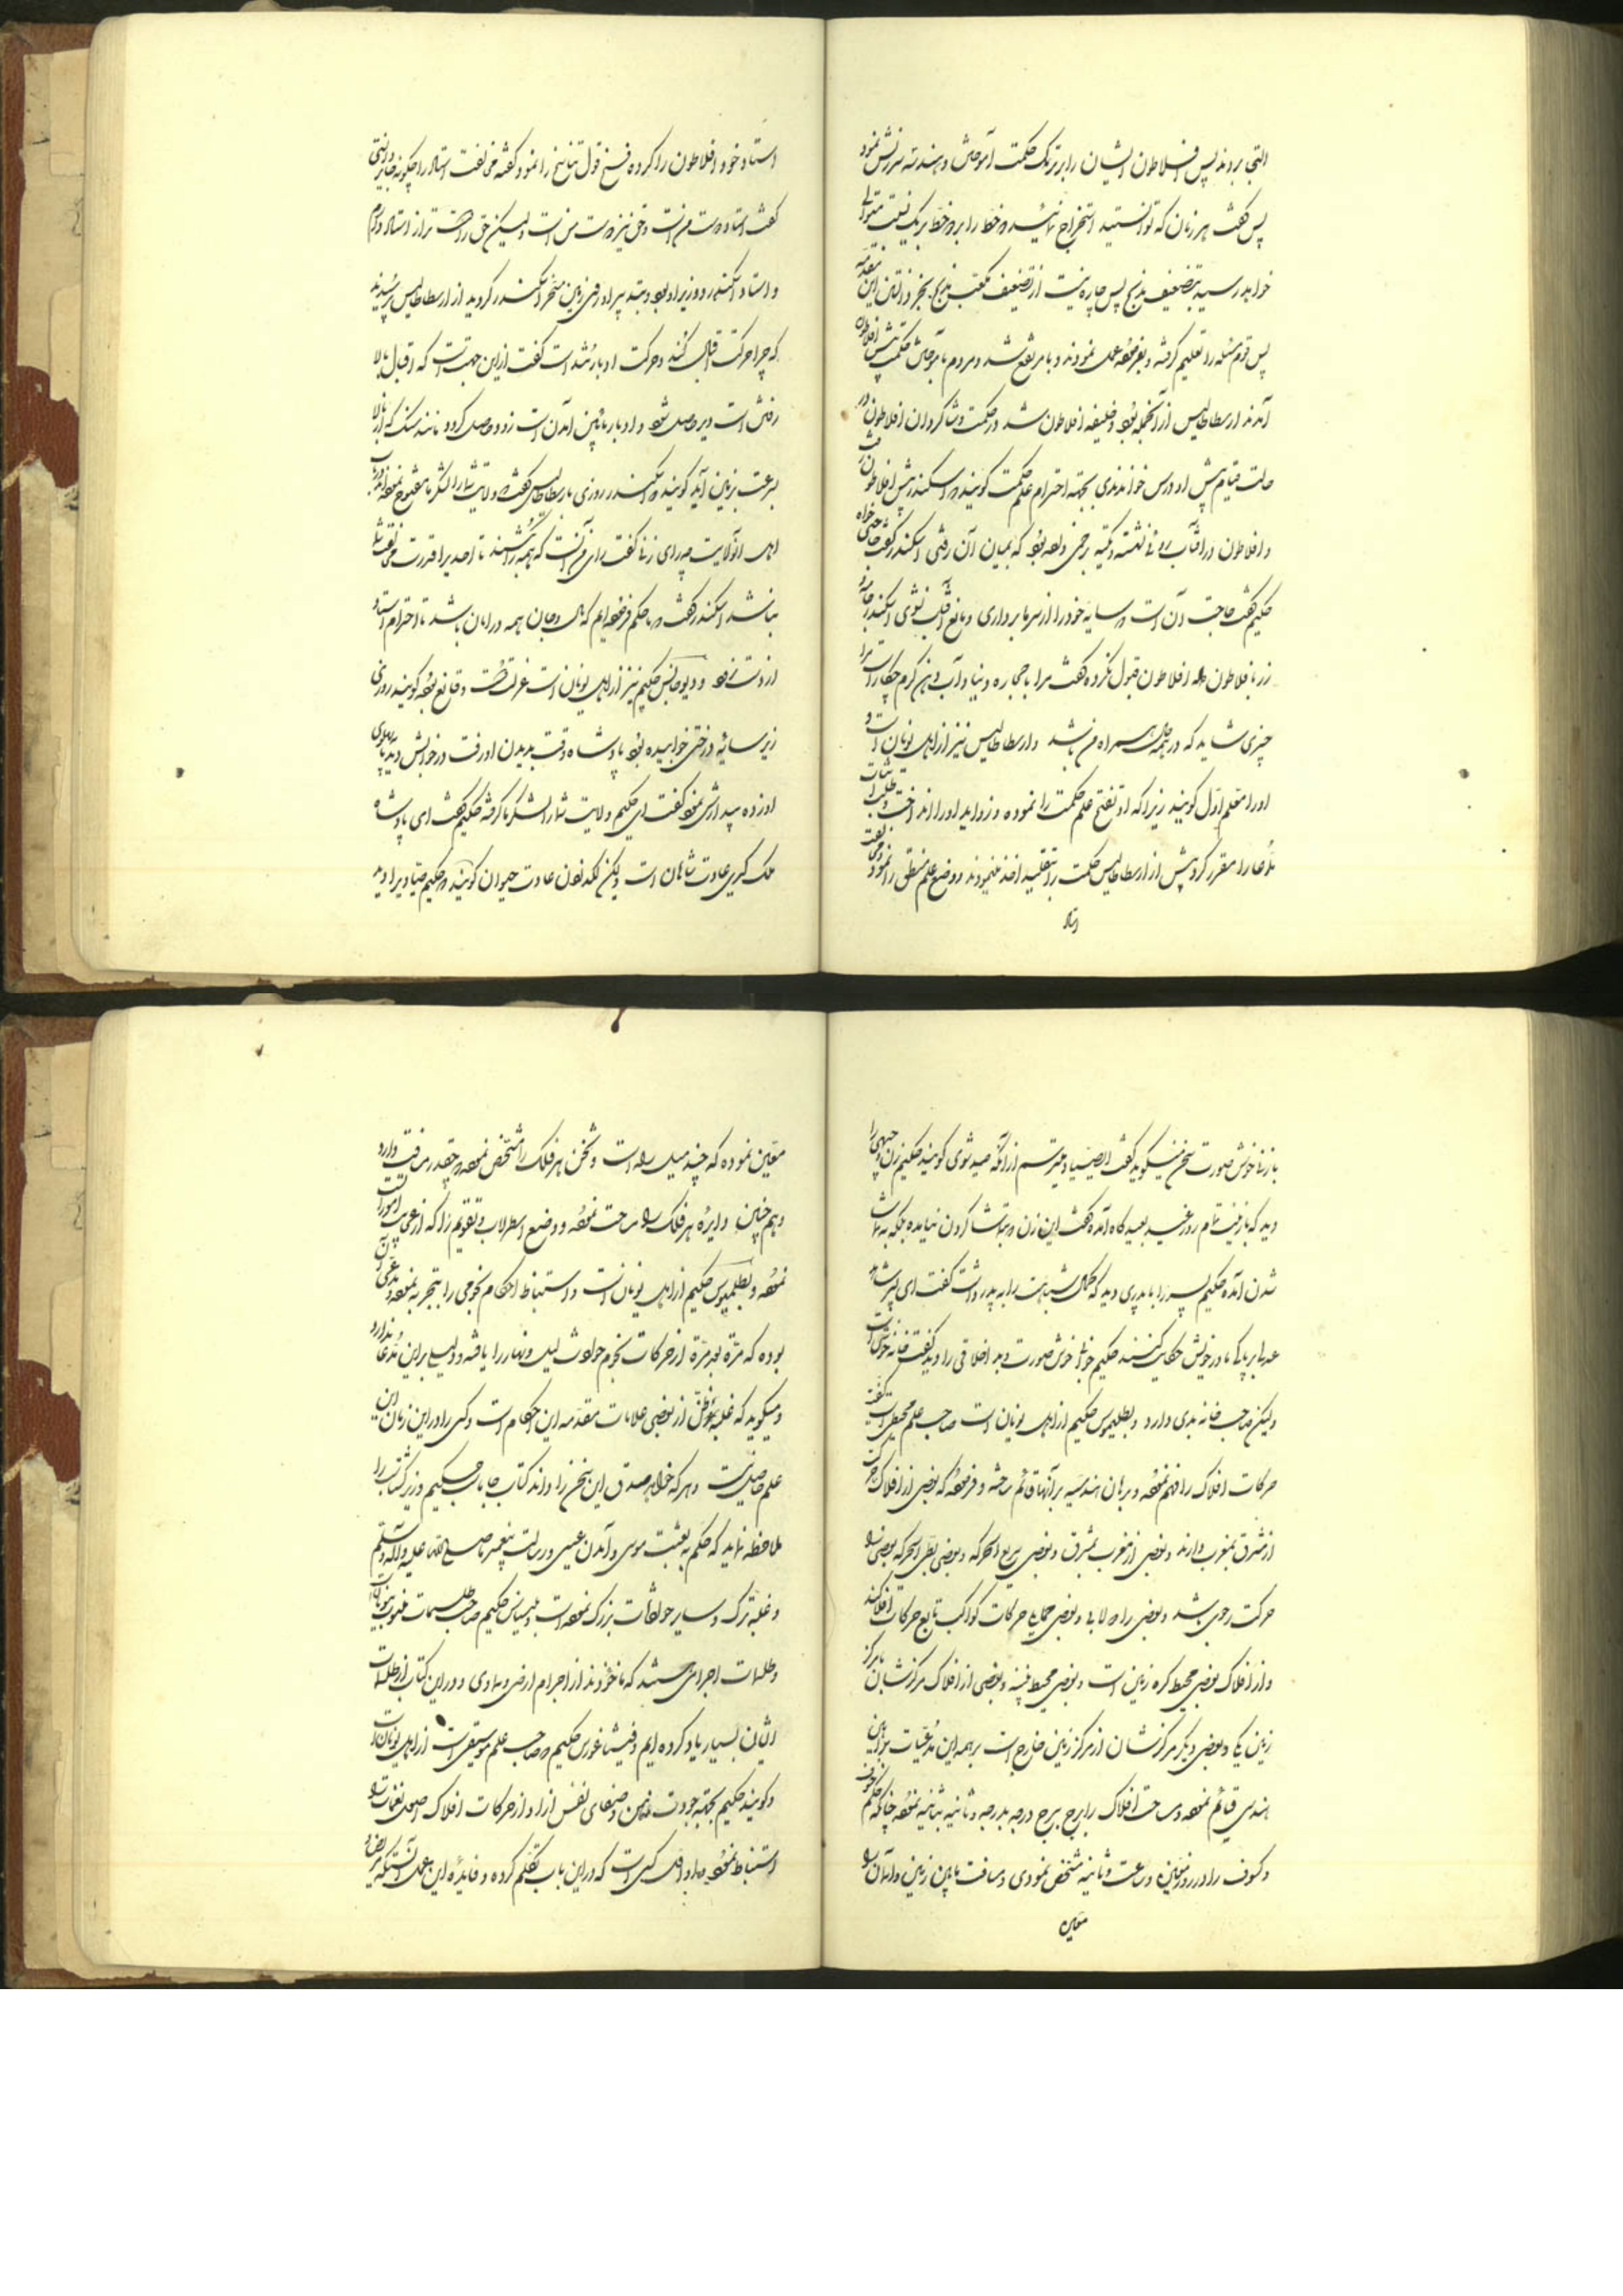 التجی بردند پس افلاطون ایشان را بر ترک حکمت آموختن و هندسه سرزنش نمود
پس گفت هر زمان که توانستید استخراج نمائید دو خط را بر دو خط بر یک نسبت متوالی
خواهید رسید بتضعیف مذبح پس چاره نیست از تضعیف مکعب مذبح بجز دانستن این مقدمه
پس قوم مسئله را تعلیم گرفته و بعمل نمودند و با مرتفع شد و مردم بآموختن حکمت پیش افلاطون
آمدند ارسطاطالیس از آنجمله بود و خلیفه افلاطون شد در حکمت و شاگردان افلاطون در
حالت قیام پیش او درس خواندندی بجهة احترام علم حکمت گویند اسکندر پیش افلاطون رفت
و افلاطون در آفتاب رو نشسته و تکیه بود که بمیان آن رفتی اسکندر گفت حاجتی خواه
حکیم گفت حاجت آن است سایه خود را از سر ما برداری و مانع آفتاب نشوی اسکندر
زر بافلاطون داد افلاطون قبول نکرده گفت مرا با حجاره دنیا و آب دهن کرم چکار است مرا
چیزی شاید که در همه جا همراه من باشد و ارسطاطالیس نیز از اهل یونان است و
اورا معلم اوّل گویند زیرا که او تنقیح علم حکمت را نموده و زواید اورا انداخت و طلب اثبات
مدّعا را مقرر کرد پیش از ارسطاطالیس حکمت را بتقلید اخذ مینمودند و وضع علم منطق را نمود
استاد
استاد خود افلاطون را کرده فسخ قول تناسخ را نمود گفته مخالفت استاد را چگونه جایز دانستی
گفت استاد دوست من است و حق نیز دوست من است و لیکن حق را دوست تر از استاد دارم
و استاد اسکندر و وزیر او بود و بتدبیر او روی زمین مسخر اسکندر گردید از ارسطاطالیس پرسیدند
که چرا حرکت اقبال کند و حرکت ادبار تند است گفت از این جهت است که اقبال بالا
رفتن است دیر حاصل شود و ادبار پائین آمدن است زود حاصل گردد مانند سنگ که از بالا
بسرعت بزمین آید گویند اسکندر روزی بارسطاطالیس گفت ولایت شما را لشکر ما مفتوح نموده اند
اهل آنولایت چه رای زنی گفت رای من آنست که همه را کشند تا احدی را قدرت مخالفت
نباشد اسکندر گفت ما حکم فرموده ایم که مال و جان همه در امان باشد تا احترام استاد
از دست نرود و دیوجانس حکیم نیز از اهل یونان است عزلت داشت و قانع بوده گویند روزی
زیر سایه درختی خوابیده بود پادشاه وقت بدیدن او رفت در خوابش دید پای
او زده بیدارش نمود گفت ای حکیم ولایت شما را لشکر ما گرفته حکیم گفت ای پادشاه
ملک گیری عادت شاهان است و لیکن لگد زدن عادت حیوان گویند حکیم صیادی را دید
با زن خوش صورت سخن میگوید گفت ای صیاد میترسم از آنکه صید شوی گویند حکیم زن را
دید که با زینت تمام روز عید بعیدگاه آمده گفت این زن بتماشا کردن نیامده بلکه به تماشا
شدن آمده حکیم پسر را با پدری دید که کمال شباهت را به پدر داشت گفت ای پسر
عدل بر پاکی مادر خویش حکایت کنند حکیم جوان خوش صورت بد اخلاقی را دید گفت خانه خوش است
ولیکن صاحب خانه بدی دارد و بطلیموس حکیم از اهل یونان است صاحب علم مجسطی است
حرکات افلاک را فهم نموده و برهان هندسیه بر آنها قائم ساخته و فرموده که بعضی از افلاک حرکت
از مشرق بمغرب دارند و بعضی از مغرب بمشرق و بعضی سریع الحرکه و بعضی بطی الحرکه بعضی را
حرکت رحوی باشد و بعضی را دولابی و بعضی حمایلی حرکات کواکب تابع حرکات افلاکند
و از افلاک بعضی محیط کره زمین است و بعضی محیط نیند و بعضی از افلاک مرکزشان با مرکز
زمین یکی و بعضی دیگر مرکزشان از مرکز زمین خارج است بر همه این مدّعیات براهین
هندسی قائم نموده و مساحت افلاک را برج برج درجه بدرجه و ثانیه بثانیه نموده چنانکه حکم خسوف
و کسوف را در روز معین و ساعت و ثانیه مشخص نمودی و مسافت مابین زمین و آسمان را
معین
معین نموده که چند میل راه است و ثخن هر فلک را مشخص نموده چقدر مسافت دارد
و هم چنین دایره هر فلک را مساحت نموده و وضع اسطرلاب و تقویم را که از عجایب امورات
نموده و بطلمیوس حکیم از اهل یونان است و استنباط احکام نجومی را بتجربه نموده و مدعی آن
بوده که مرّة بعد مرّة از حرکات نجوم حوادث لیل و نهار را یافته و دلیل بر این مدّعا ندارد
و میگوید که غلبه ظن از بعضی علامات مقدمه این احکام است و کسی را در این زمان این
علم حاصل نیست و هر که خواهد صدق این سخن را داند کتاب جاماسب حکیم وزیر گشتاسب را
ملاحظه نماید که حکم به بعثت موسی و آمدن عیسی و رسالت پیغمبر ما صلی الله علیه و آله و سلم
و غلبه ترک و سایر حوادثات بزرگ نموده است و بلیناس حکیم صاحب طلسمات منسوب بیونان
و طلسمات اجرامی هستند که ماخوذند از اجرام ارضی و سماوی و در این کتاب از طلسمات
ایشان بسیار یاد کرده ایم و فیثاغورس حکیم صاحب علم موسیقی است از اهل یونان است
و گویند حکیم بجهة جودت ذهن و صفای نفس از او از حرکات افلاک اصل نغمات را
استنباط نموده و او اول کسی است که در این باب تکلم کرده و فایده این عمل آنستکه مریض را